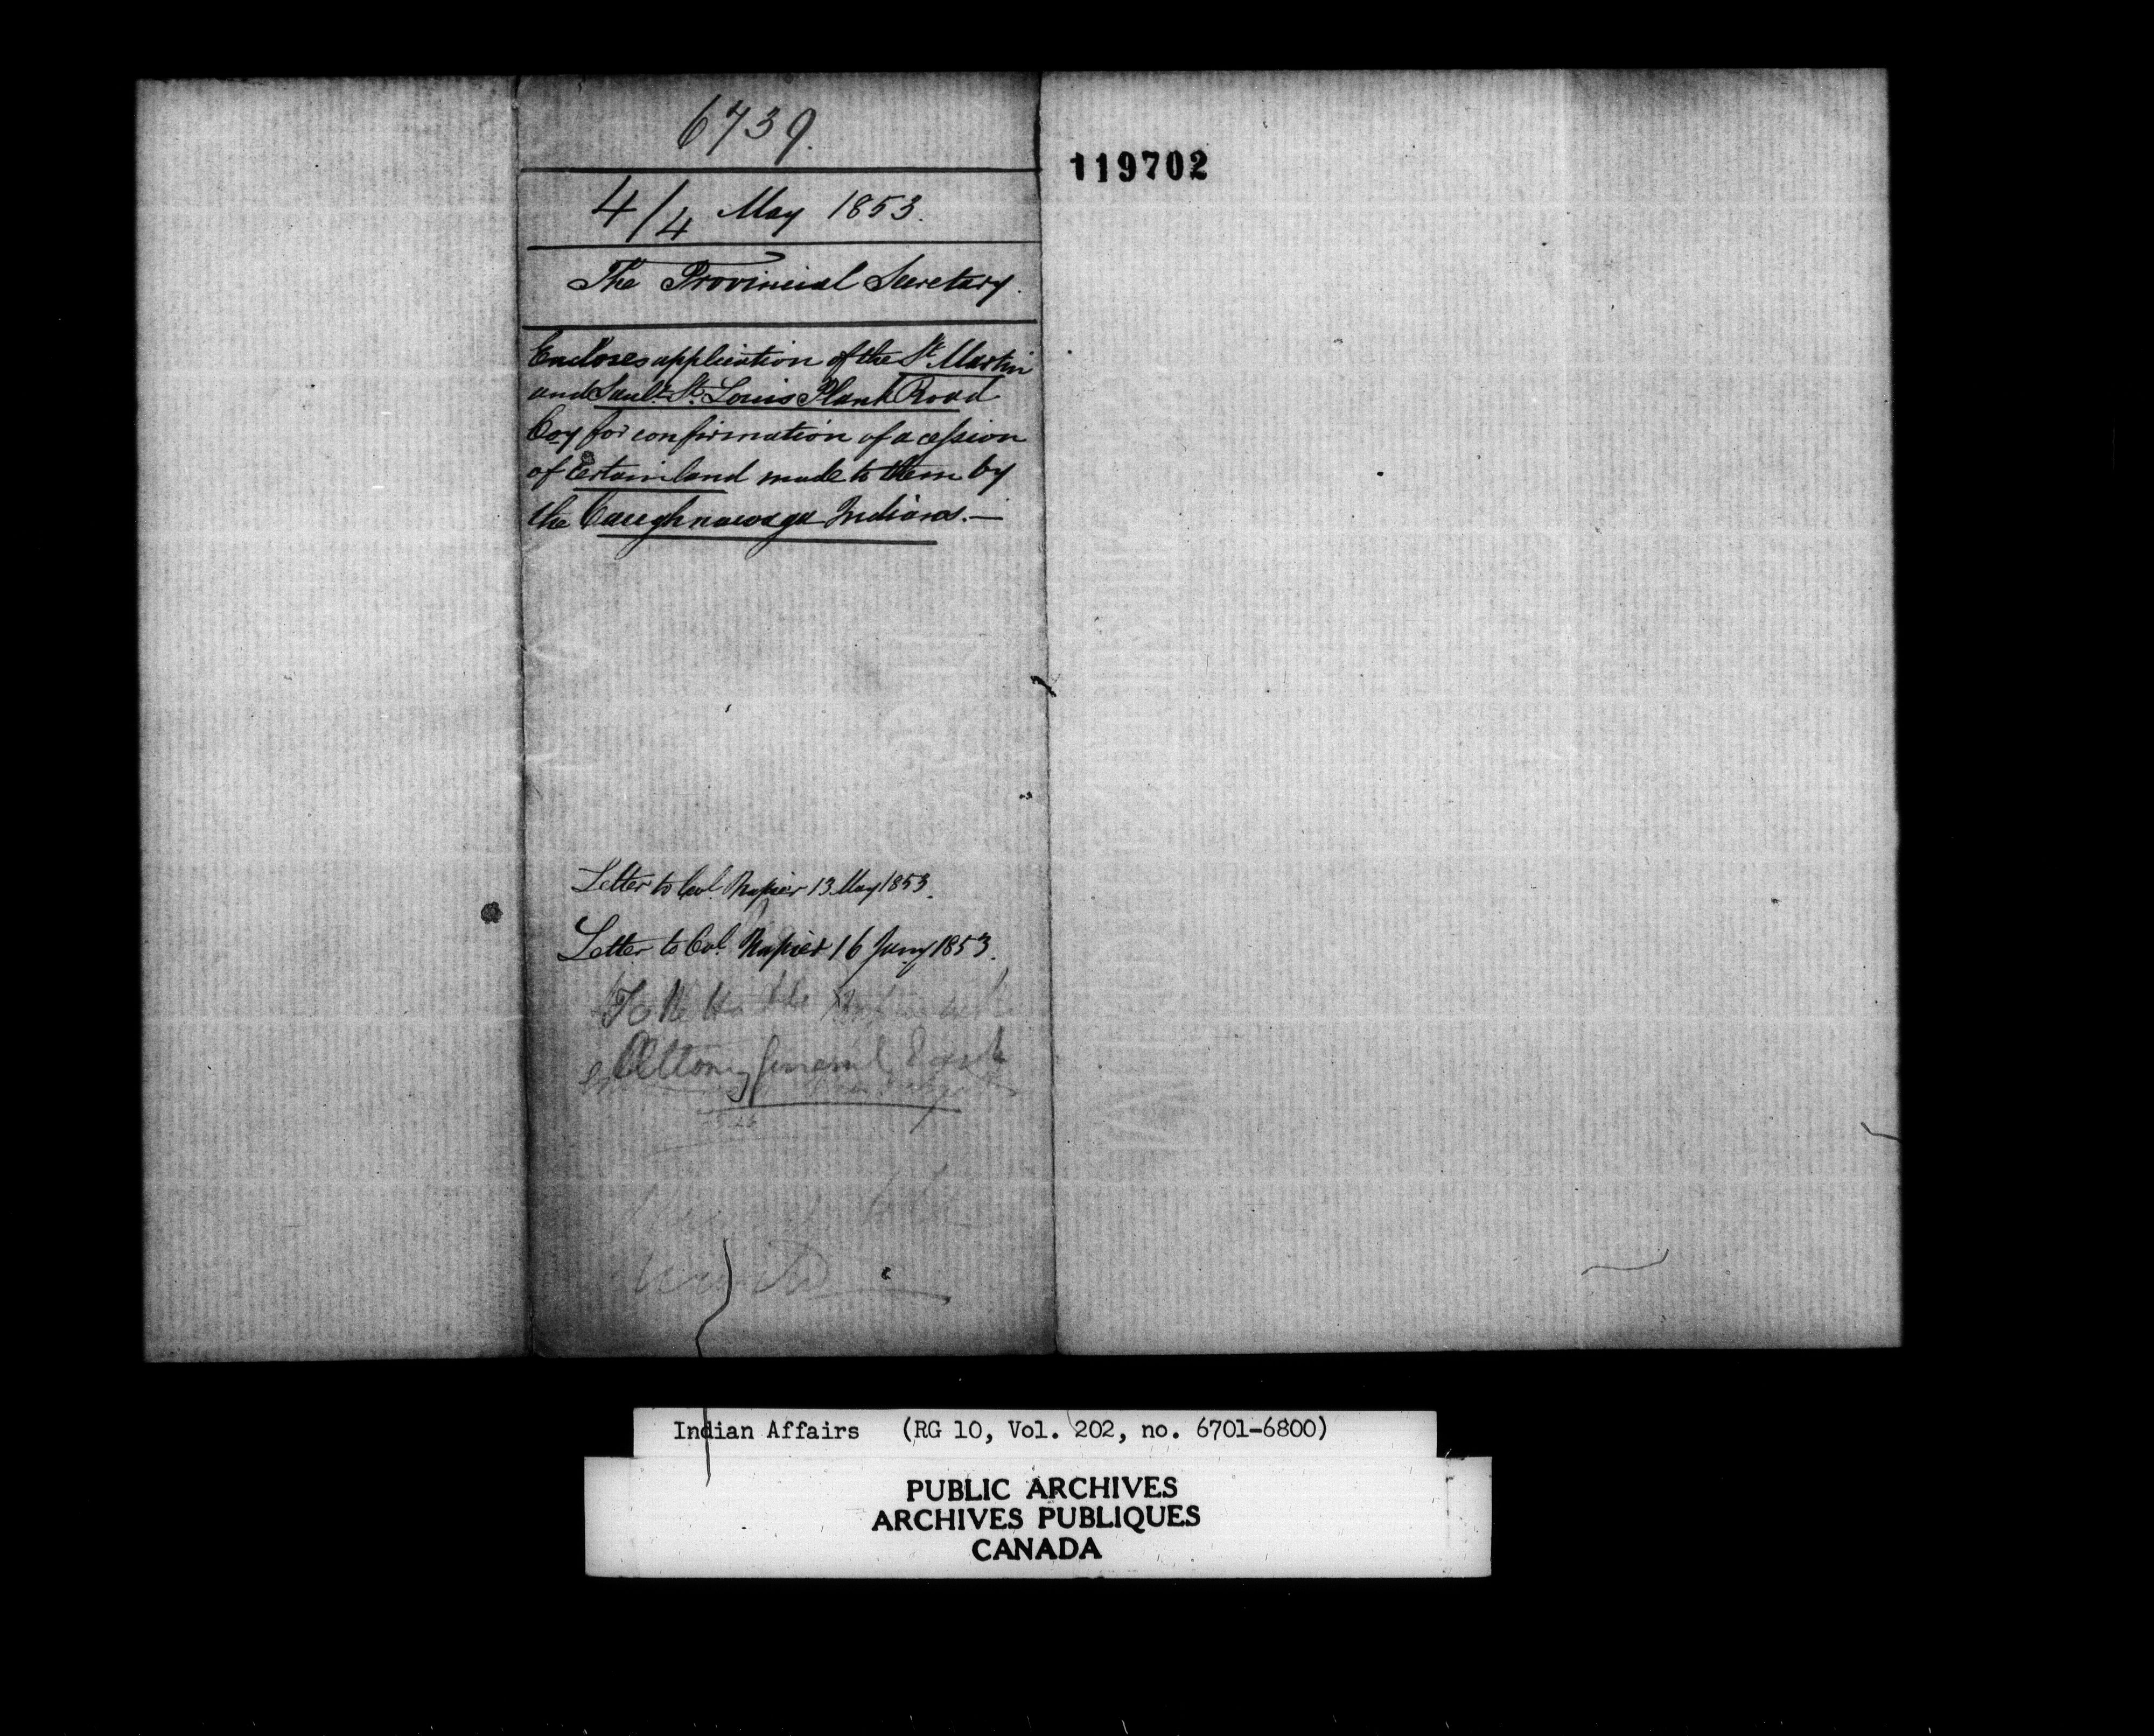 6739.
119702
4/4 May 1853.
The Provincial Secretary.
Encloses application of the St. Martin
and Sault St. Louis Plank Road
Coy for confirmation of a cession
of certain land made to them by
the Caughnawaga Indians.—
Letter to Col. Napier 13 May 1853.
Letter to Col. Napier 16 1853.
Attorney General
Indian Affairs (RG 10, Vol. 202, no. 6701-6800)
PUBLIC ARCHIVES
ARCHIVES PUBLIQUES
CANADA